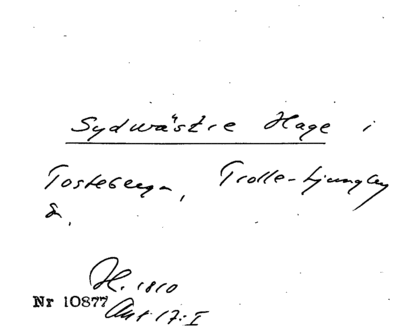 Sydwästre Hage i
Tosteberga, Trolle-Ljungby
S.
H. 1810
Nr 10877
Akt 17:I